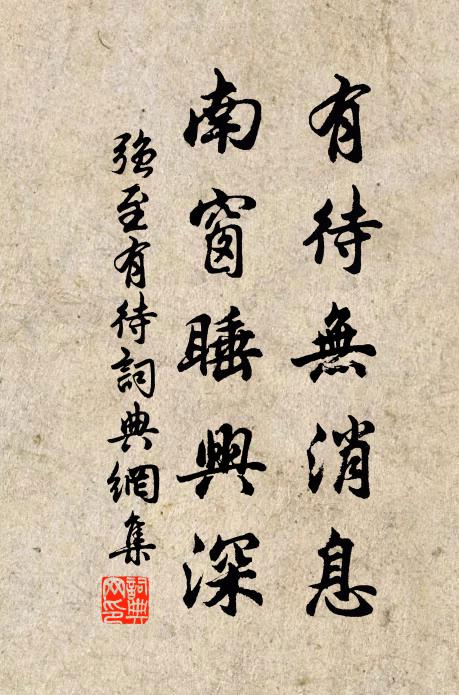 有待無消息
南窗睡興深
強至有待詞典網集
詞典
网印